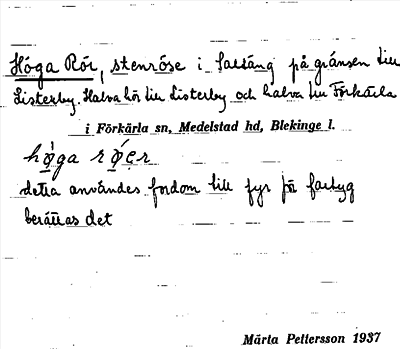 Höga Rör, stenröse i Saltäng på gränsen till
Listerby. Halva hör till Listerby och halva till Förkärla
i Förkärla sn, Medelstad hd, Blekinge l.
hø̀ga røer
detta användes fordom till fyr för fartyg
berättas det
Märta Pettersson 1937